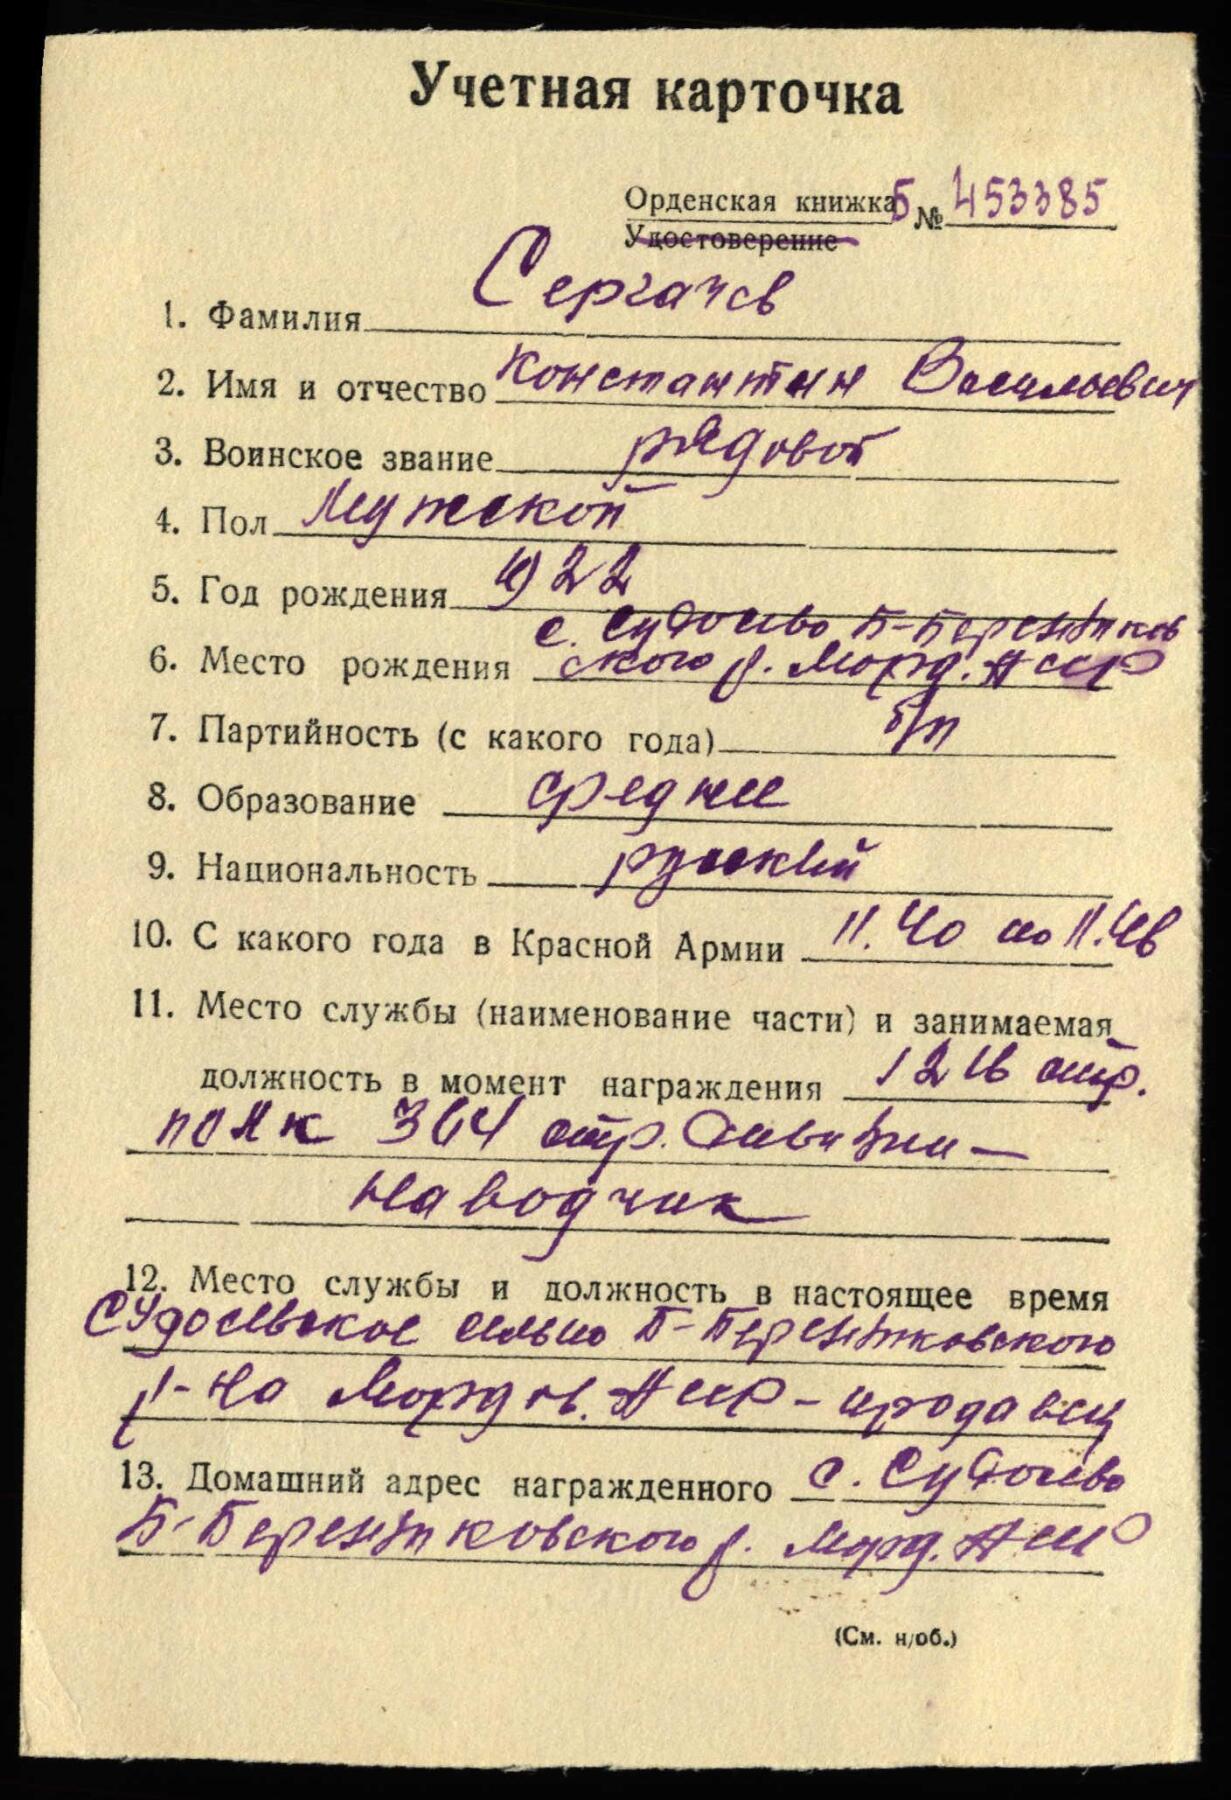 Учетная карточка
Орденская книжка Б № 453385
Удостоверение
Сергачев
1. Фамилия
2. Имя и отчество Константин Васильевич
3. Воинское звание рядовой
4. Пол Мужской
5. Год рождения 1922
с. Судосево Б-Березников
6. Место рождения ского р. Морд. АССР
7. Партийность (с какого года) б/п
8. Образование среднее
9. Национальность русский
10. С какого года в Красной Армии 11.40 по 11.46
11. Место службы (наименование части) и занимаемая
должность в момент награждения 1216 стр.
полк 364 стр. дивизии —
наводчик
12. Место службы и должность в настоящее время
Судосевское сельпо Б-Березниковского
р-на Мордов. АССР - продавец
13. Домашний адрес награжденного с. Судосево
Б-Березниковского р. Морд. АССР
(См. н/об.)